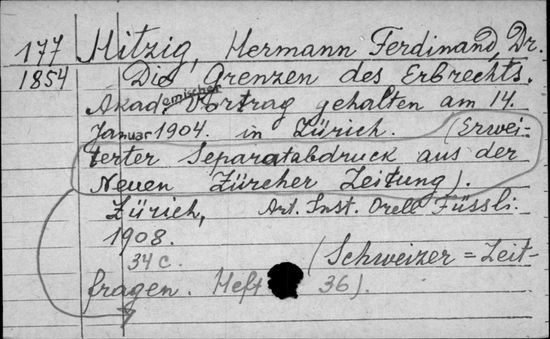 177 Hitzig, Hermann Ferdinand, Dr.
1854 Die Grenzen des Erbrechts.
Akademischer Vortrag gehalten am 14.
Januar 1904. in Zürich. (Erwei-
terter Separatabdruck aus der
Neuen Zürcher Zeitung).
Zürich, Art. Inst. Orell Füssli.
1908.
34 c. (Schweizer = Zeit-
fragen. Heft 36).